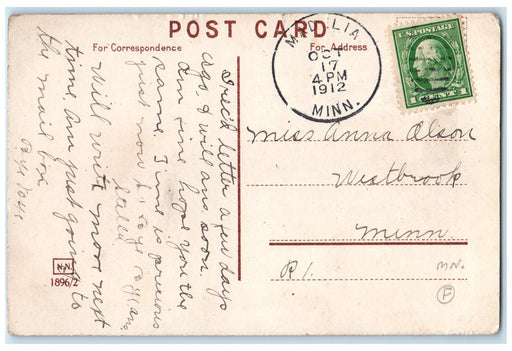 POST CARD
For Correspondence
For Address
MADELIA
OCT
17
4 PM
1912
MINN.
U.S. POSTAGE
1 CENT 1
I recd letter a few days
ago & will ans soon.
am fine hope you the
same. Time is precious
just now
Will write more next
time. Am just going to
the mail box
Bye Bye
Miss Anna Olson
Westbrook
Minn.
R 1.
MN.
F
N.N.
1896/2